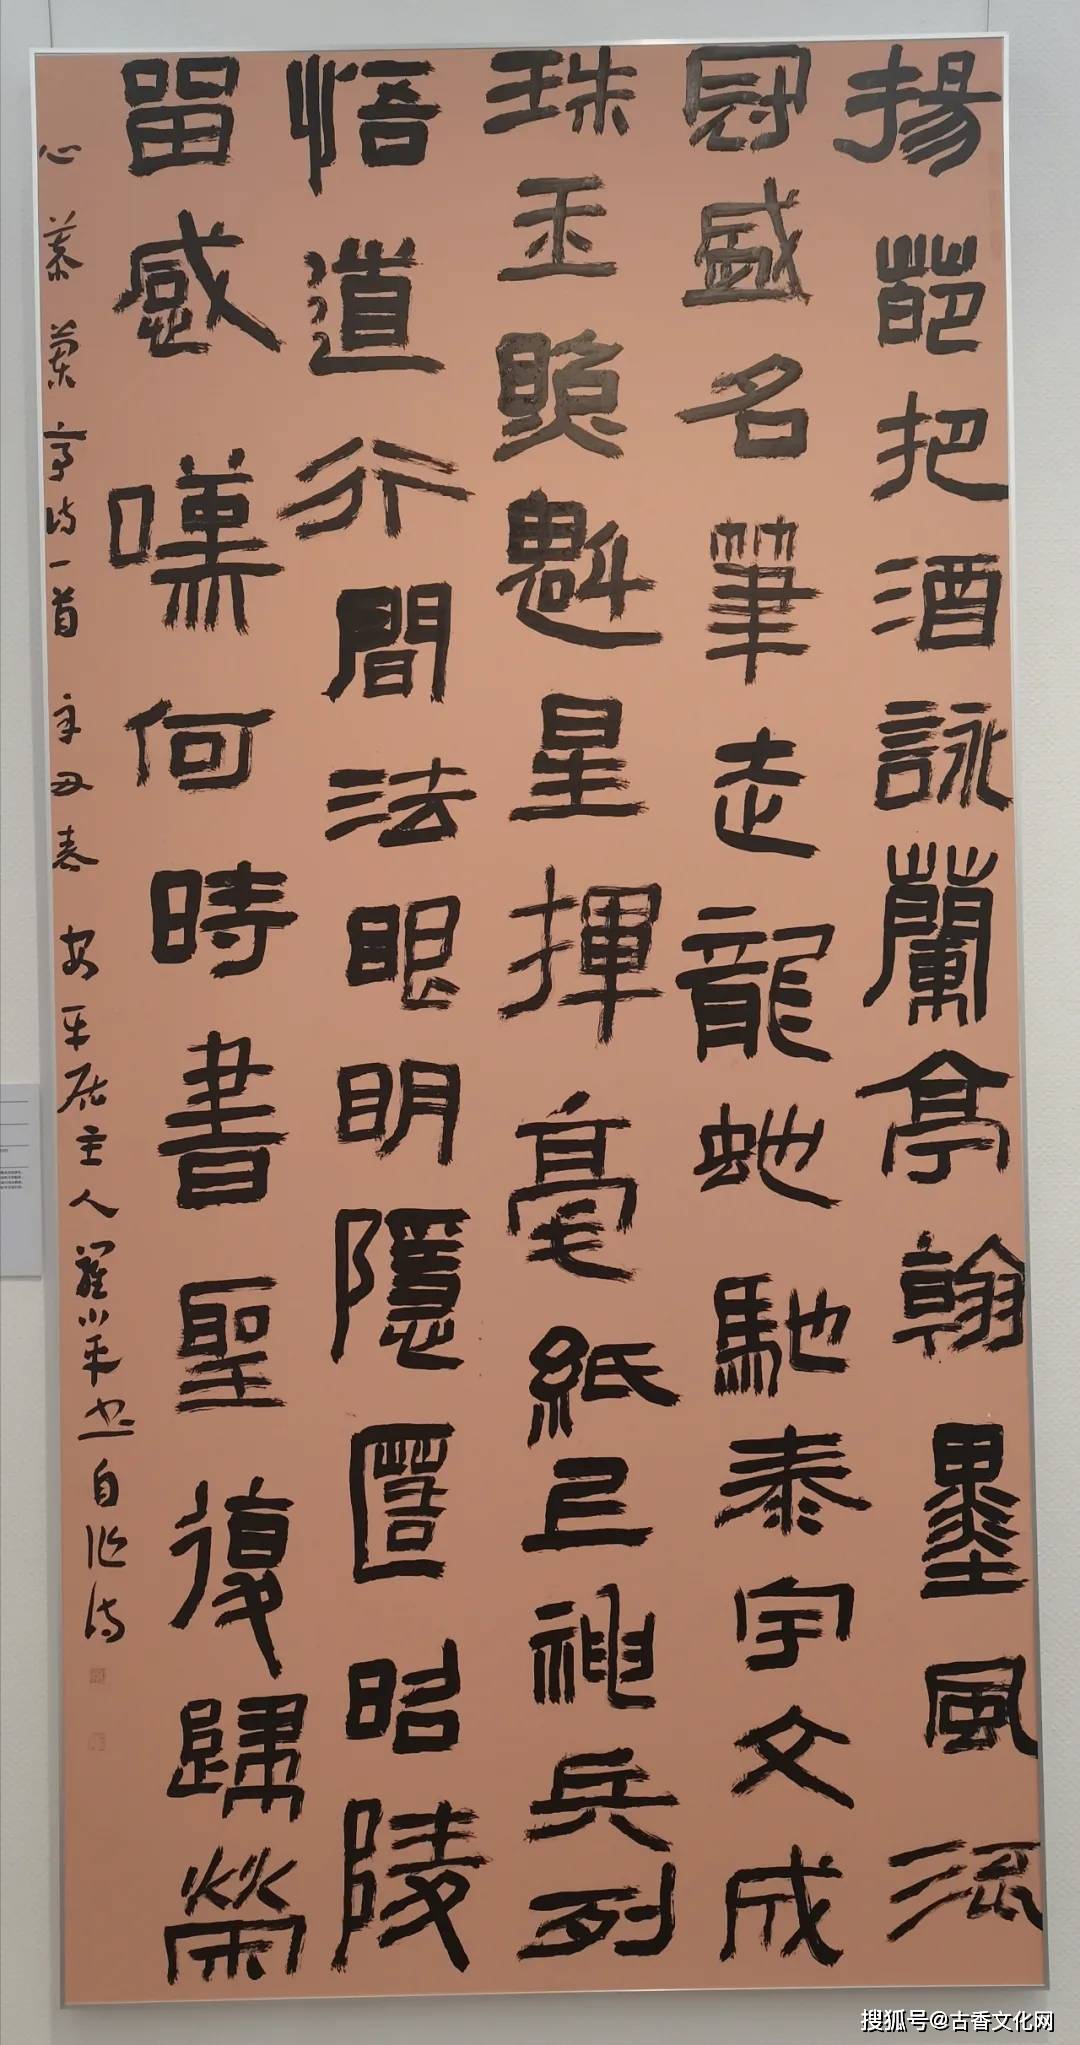 揚葩把酒詠蘭亭翰墨風流
冠盛名筆走龍虵馳泰宇文成
珠玉照魁星揮毫紙上神兵列
悟道行間法眼明隱匿昭陵
留感嘆何時書聖復歸榮
心慕蘭亭詩一首 辛丑春 安平居主人 小平書自作詩
搜狐号@古香文化网